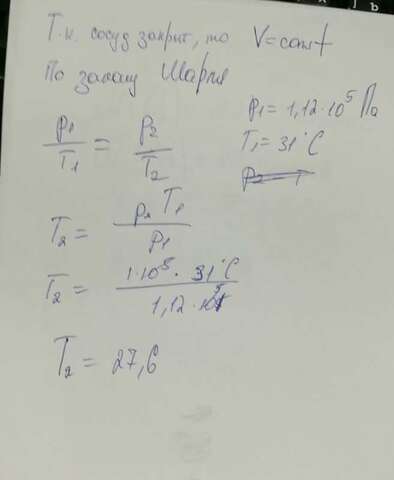 Т.к. сосуд закрыт, то V=const
По закону Шарля
p1 = 1,12·10⁵ Па
T1 = 31°C
p1/T1 = p2/T2
T2 = p2 T1/p1
T2 = 1·10⁵·31°C/1,12·10⁵
T2 = 27,6